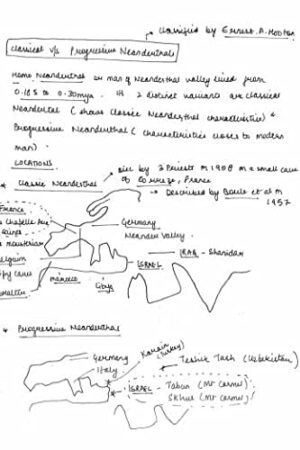 classified by Ernest. A. Hooton
Classical v/s Progressive Neanderthals
Homo Neanderthal or man of Neanderthal valley lived from
0.185 to 0.30mya. Its 2 distinct variants are classical
Neandertal (shows Classic Neanderthal characteristics) &
Progressive Neanderthal (characteristics closer to modern
man).
LOCATIONS
disc by 3 Priests in 1908 in a small cave
of Correze, France
* Classic Neanderthal
Described by Boule et al in
1957
France
Chapelle Aux
Saints
Germany
Neander Valley
mousterian
IRAQ - Shanidar
Belgium
ISRAEL
Spy cave
Morocco
Libya
* Progressive Neanderthal
Germany
Italy
(Turkey)
Teshik Tash (Uzbekistan)
ISRAEL - Tabun (Mt Carmel)
Skhul (Mt Carmel)